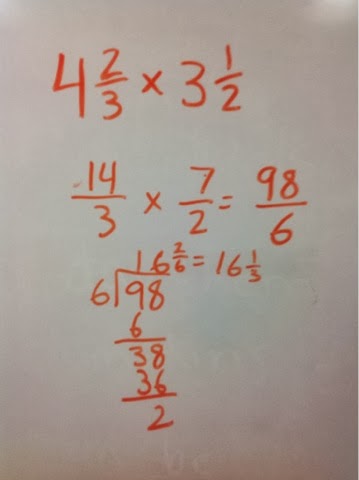 4 2/3 × 3 1/2
14/3 × 7/2 = 98/6
16 2/6 = 16 1/3
6)98
6
38
36
2